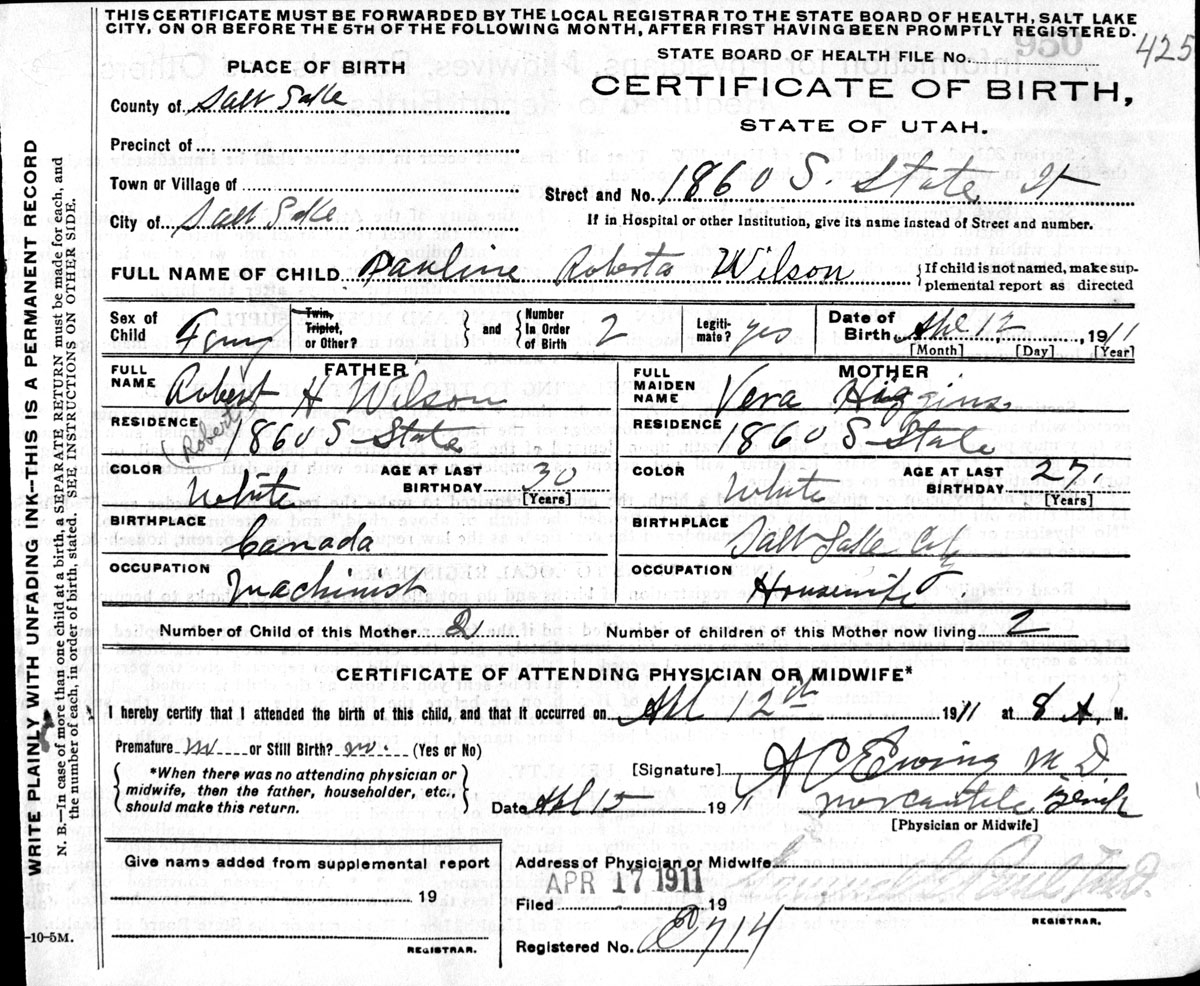 THIS CERTIFICATE MUST BE FORWARDED BY THE LOCAL REGISTRAR TO THE STATE BOARD OF HEALTH, SALT LAKE
CITY, ON OR BEFORE THE 5TH OF THE FOLLOWING MONTH, AFTER FIRST HAVING BEEN PROMPTLY REGISTERED.
950
STATE BOARD OF HEALTH FILE No. 425
PLACE OF BIRTH
CERTIFICATE OF BIRTH,
STATE OF UTAH.
County of Salt Lake
Precinct of
Town or Village of
Street and No. 1860 S. State St
City of Salt Lake
If in Hospital or other Institution, give its name instead of Street and number.
FULL NAME OF CHILD Pauline Roberta Wilson
{If child is not named, make sup-
plemental report as directed
Sex of Child
Twin, Triplet, or Other?
and
Number In Order of Birth 2
Legiti-mate? yes
Date of Birth Apl 12, 1911
[Month] [Day] [Year]
FATHER
FULL NAME Robert H Wilson
(Robert)
RESIDENCE 1860 S State
COLOR White
AGE AT LAST BIRTHDAY 30
[Years]
BIRTHPLACE Canada
OCCUPATION Machinist
MOTHER
FULL MAIDEN NAME Vera Higgins
RESIDENCE 1860 S State
COLOR White
AGE AT LAST BIRTHDAY 27
(Years)
BIRTHPLACE Salt Lake City
OCCUPATION Housewife
Number of Child of this Mother 2
Number of children of this Mother now living 2
CERTIFICATE OF ATTENDING PHYSICIAN OR MIDWIFE*
I hereby certify that I attended the birth of this child, and that it occurred on Apl 12th 1911 at 8 A. M.
Premature no or Still Birth? no. (Yes or No)
*When there was no attending physician or
midwife, then the father, householder, etc.,
should make this return.
[Signature] A C Ewing M D.
Date Apl 15 1911
Mercantile
[Physician or Midwife]
Give name added from supplemental report
19
REGISTRAR.
Address of Physician or Midwife
APR 17 1911
Filed 19
REGISTRAR.
Registered No. 714
-10-5M.
WRITE PLAINLY WITH UNFADING INK—THIS IS A PERMANENT RECORD
N. B.—In case of more than one child at a birth, a SEPARATE RETURN must be made for each, and
the number of each, in order of birth, stated. SEE INSTRUCTION ON OTHER SIDE.